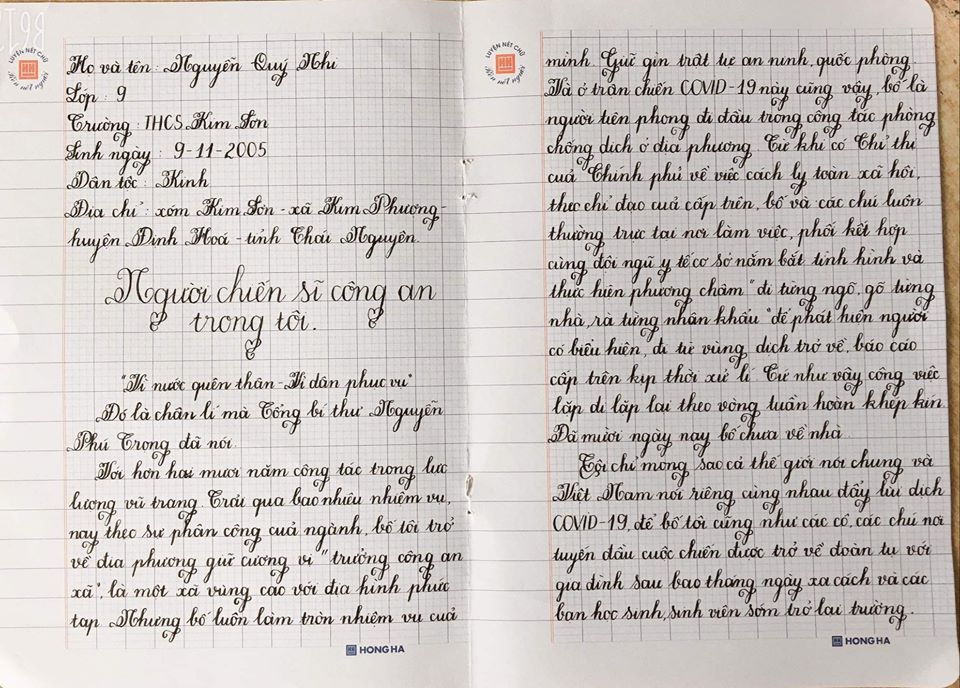 LUYỆN NÉT CHỮ
RÈN NẾT NGƯỜI
Họ và tên: Nguyễn Quý Nhi
Lớp: 9
Trường: THCS Kim Sơn
Sinh ngày: 9-11-2005
Dân tộc: Kinh
Địa chỉ: xóm Kim Sơn - xã Kim Phượng -
huyện Định Hoá - tỉnh Thái Nguyên.
Người chiến sĩ công an
trong tôi.
"Vì nước quên thân - Vì dân phục vụ"
Đó là chân lí mà Tổng bí thư Nguyễn
Phú Trọng đã nói.
Với hơn hai mươi năm công tác trong lực
lượng vũ trang. Trải qua bao nhiêu nhiệm vụ,
nay theo sự phân công của ngành, bố tôi trở
về địa phương giữ cương vị "trưởng công an
xã", là một xã vùng cao với địa hình phức
tạp. Nhưng bố luôn làm tròn nhiệm vụ của
HONG HA
LUYỆN NÉT CHỮ
RÈN NẾT NGƯỜI
mình. Giữ gìn trật tự an ninh, quốc phòng.
Và ở trận chiến COVID-19 này cũng vậy, bố là
người tiên phong đi đầu trong công tác phòng
chống dịch ở địa phương. Từ khi có Chỉ thị
của Chính phủ về việc cách ly toàn xã hội,
theo chỉ đạo của cấp trên, bố và các chú luôn
thường trực tại nơi làm việc, phối kết hợp
cùng đội ngũ y tế cơ sở nắm bắt tình hình và
thực hiện phương châm "đi từng ngõ, gõ từng
nhà, rà từng nhân khẩu" để phát hiện người
có biểu hiện, đi từ vùng dịch trở về, báo cáo
cấp trên kịp thời xử lí. Cứ như vậy công việc
lặp đi lặp lại theo vòng tuần hoàn khép kín.
Đã mười ngày nay bố chưa về nhà.
Tôi chỉ mong sao cả thế giới nói chung và
Việt Nam nói riêng cùng nhau đẩy lùi dịch
COVID-19, để bố tôi cũng như các cô, các chú nơi
tuyến đầu cuộc chiến được trở về đoàn tụ với
gia đình sau bao tháng ngày xa cách và các
bạn học sinh, sinh viên sớm trở lại trường.
HONG HA